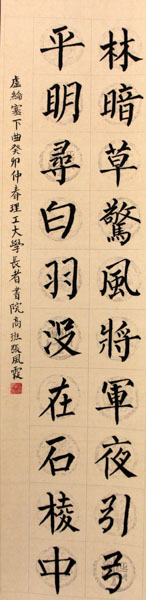 林暗草驚風將軍夜引弓
平明尋白羽没在石棱中
盧綸塞下曲癸卯仲春理工大學長者書院高班張風霞